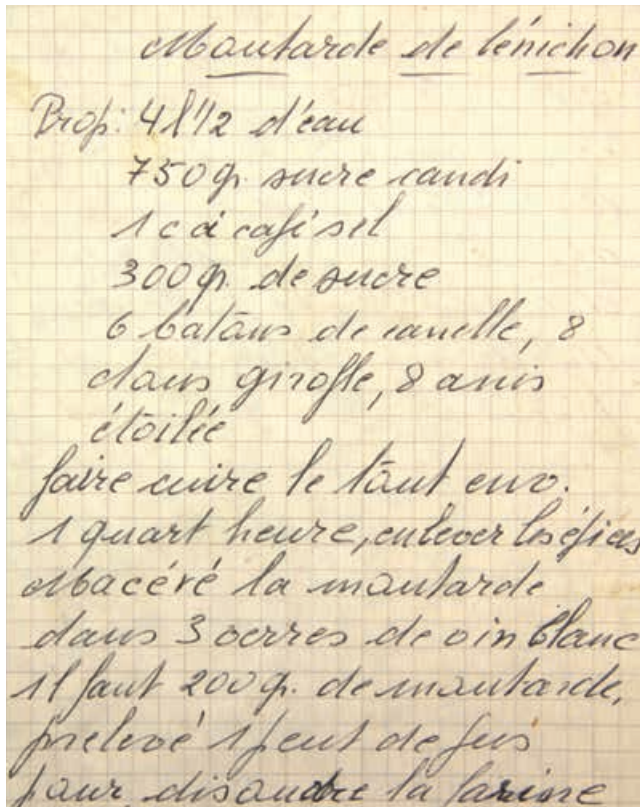 Moutarde de bénichon
Prop: 4 l 1/2 d'eau
750 gr. sucre candi
1 c à café sel
300 gr. de sucre
6 batons de canelle, 8
clous girofle, 8 anis
étoilée
faire cuire le tout env.
1 quart heure, enlever les épices
Macéré la moutarde
dans 3 verres de vin blanc
il faut 200 gr. de moutarde,
prelevé 1 peut de jus
pour disoudre la farine